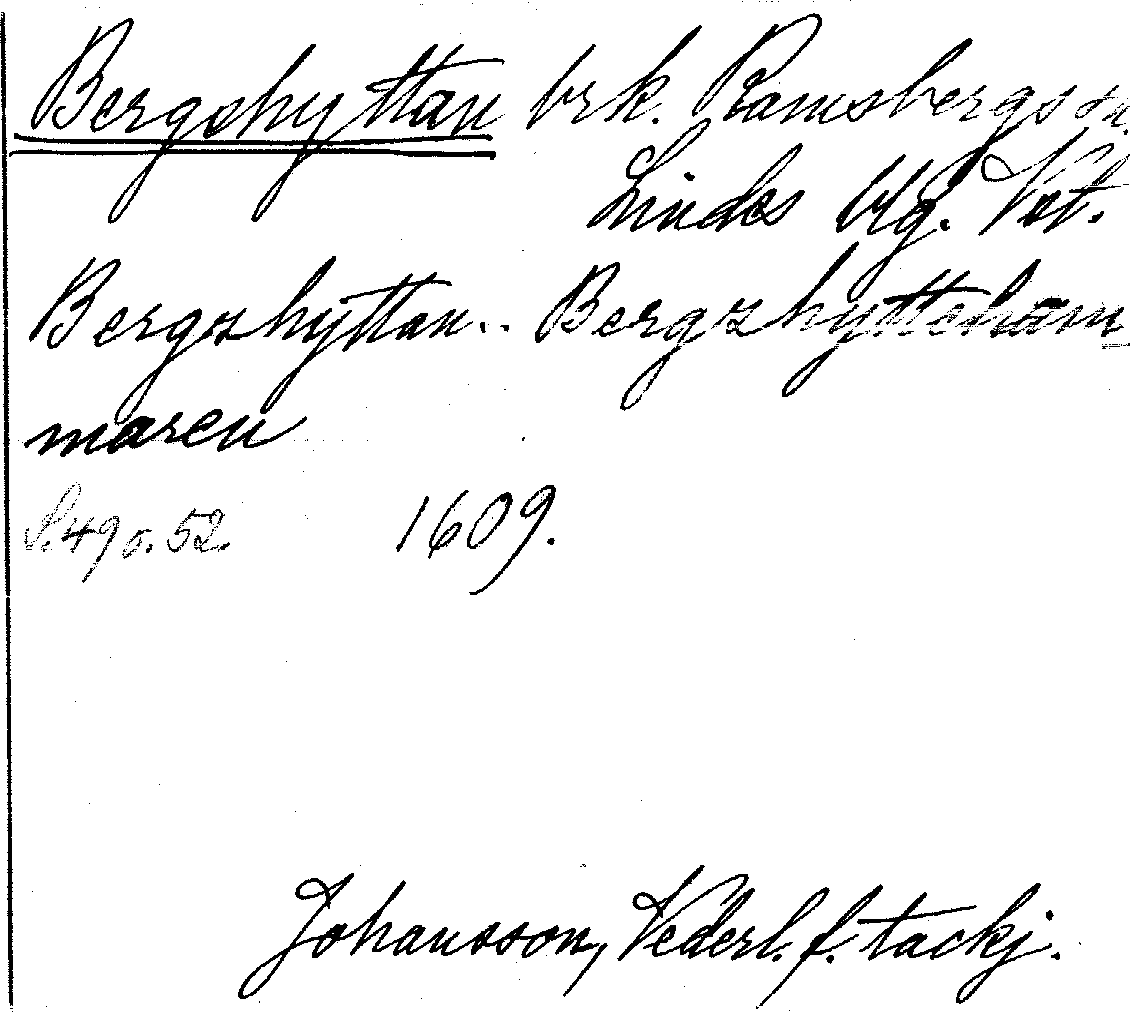 Bergshyttan brk. Ramsbergs sn.
Lindes blg. Vstm.
Bergshyttan.. Bergshytteham
maren
S. 49 o. 52. 1609.
Johansson, Vederl. f. tackj.